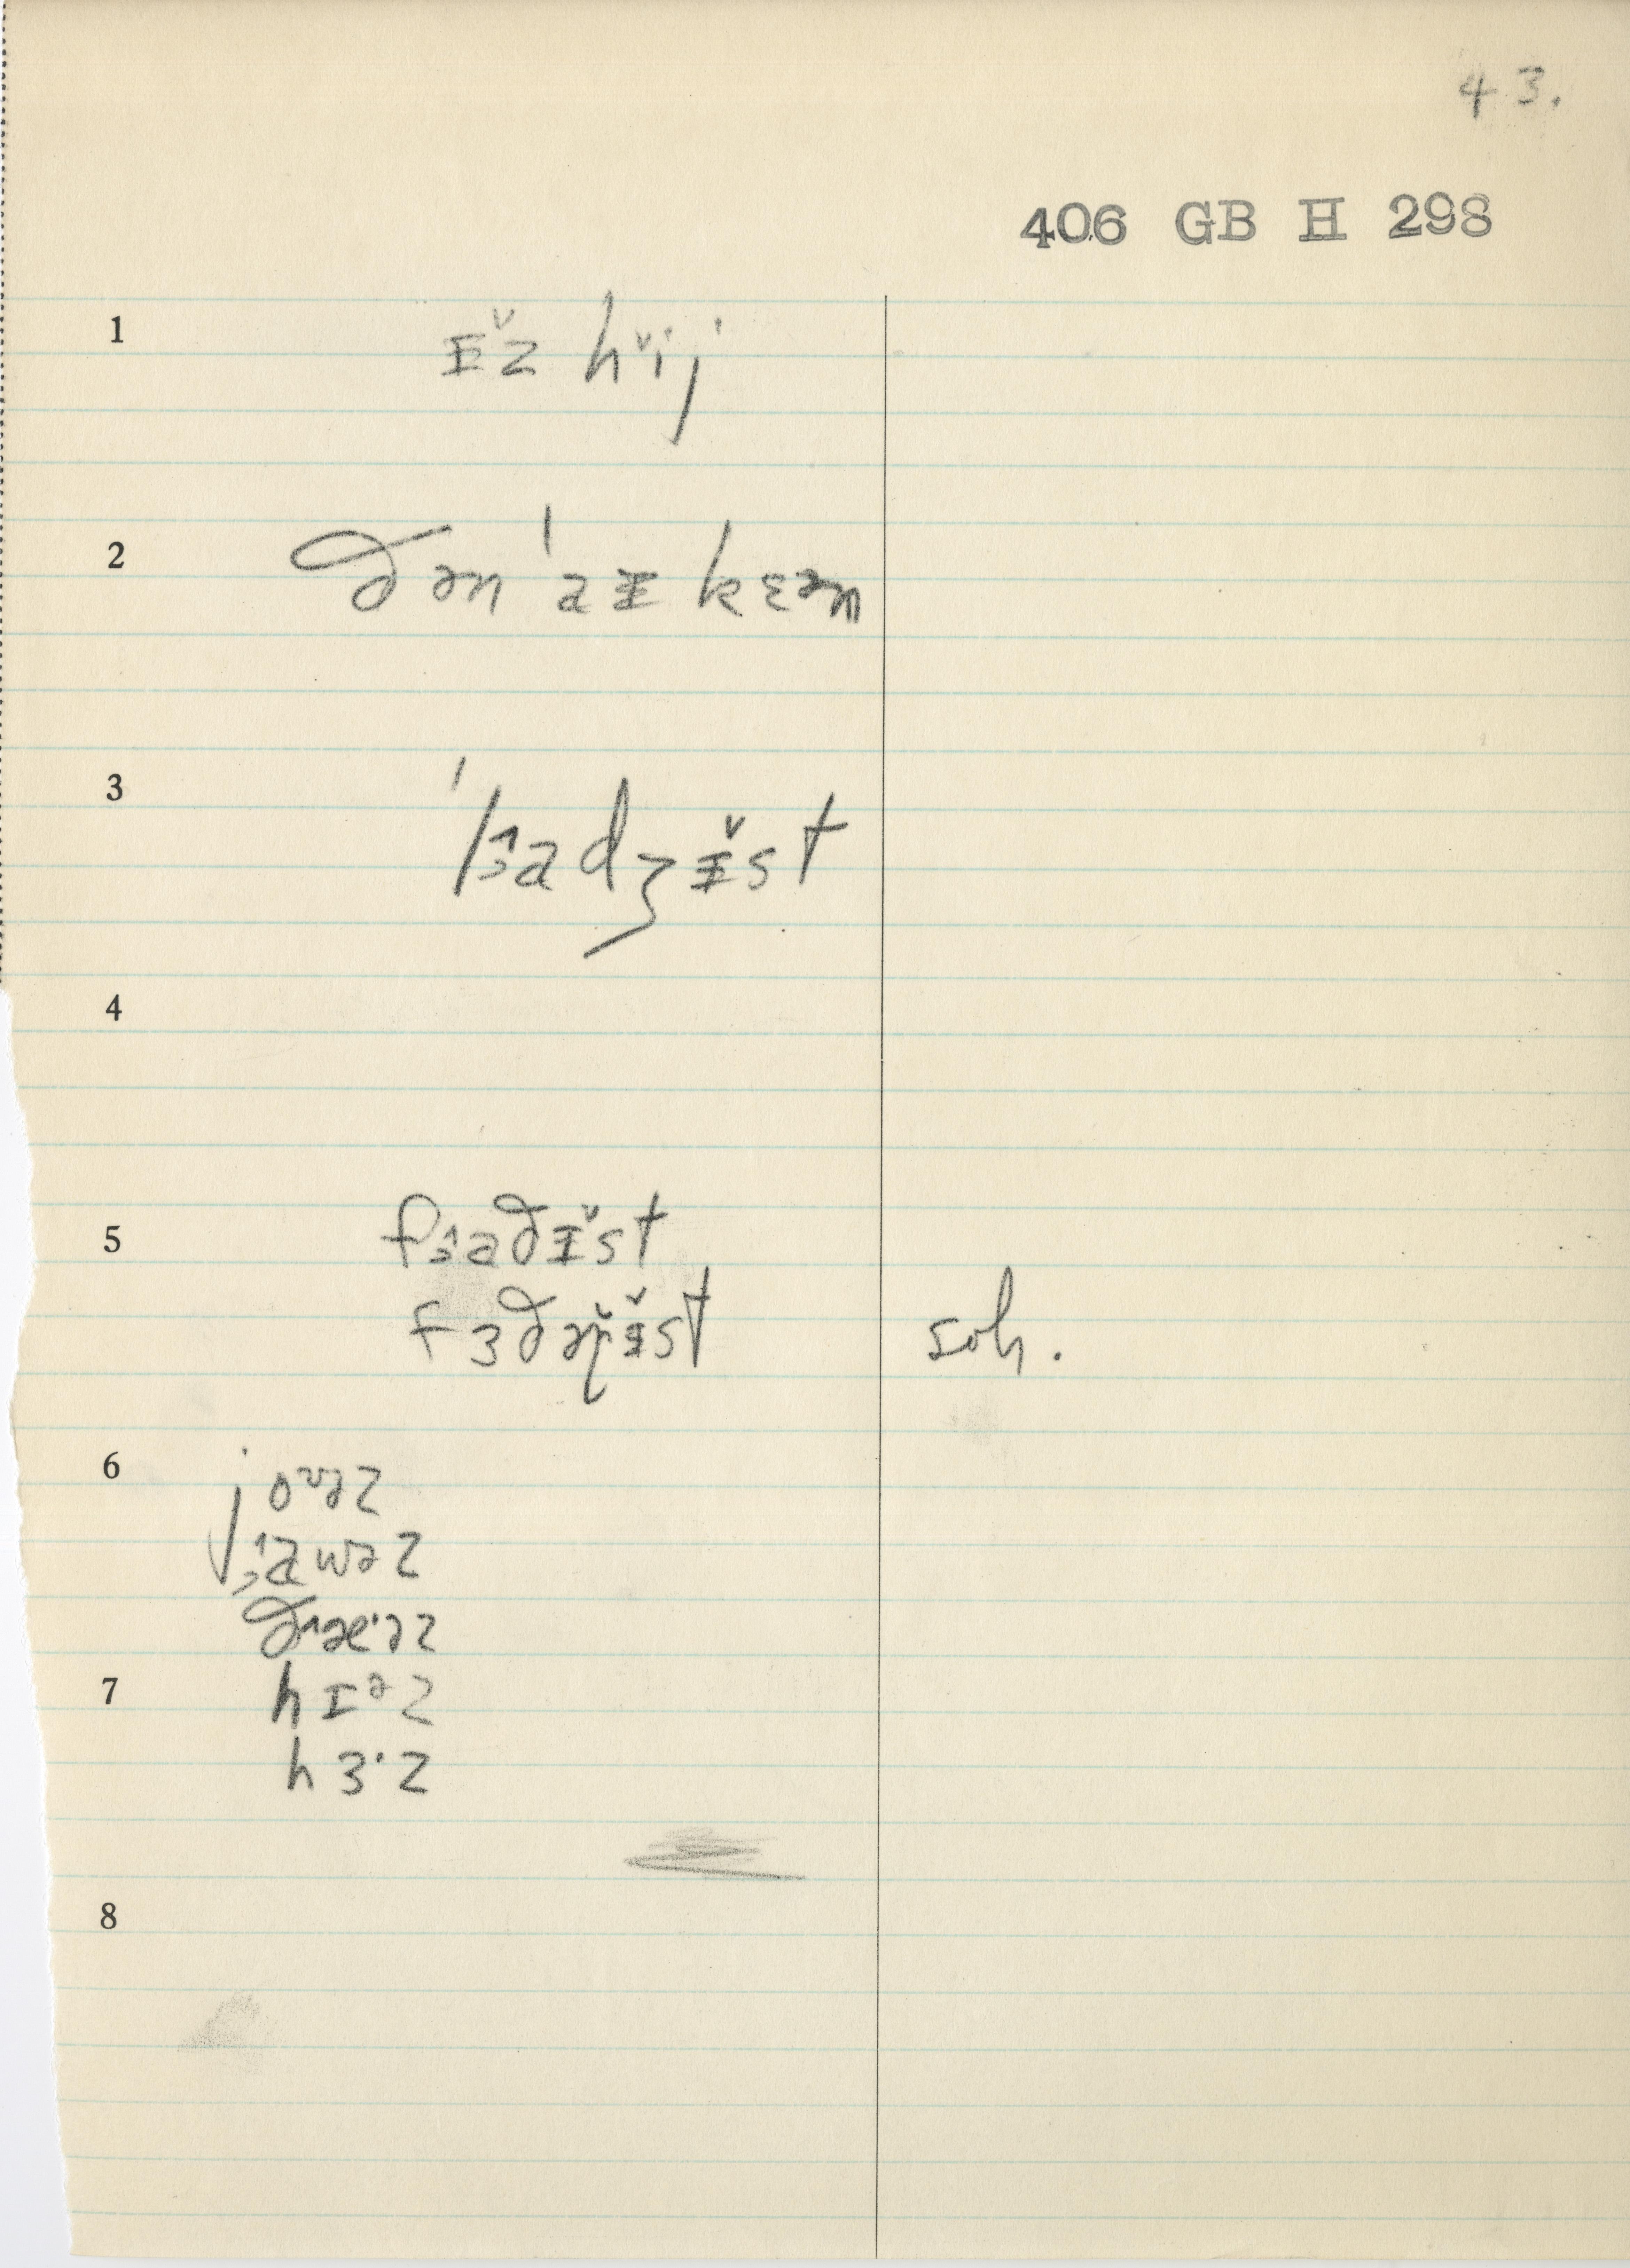 43.
406 GB H 298
1 ɪ̆z hĭj
2 ðən ˈaɪ kɛən
3 ˈlɜˆadʒɪ̆st
4
5 fɜˆaðɪ̆st
fɜðəɹɪ̆st soh.
6 joᵛəz
jɜˆawəz
ðˆæˑəz
7 hɪᵊz
hɜˑz
8